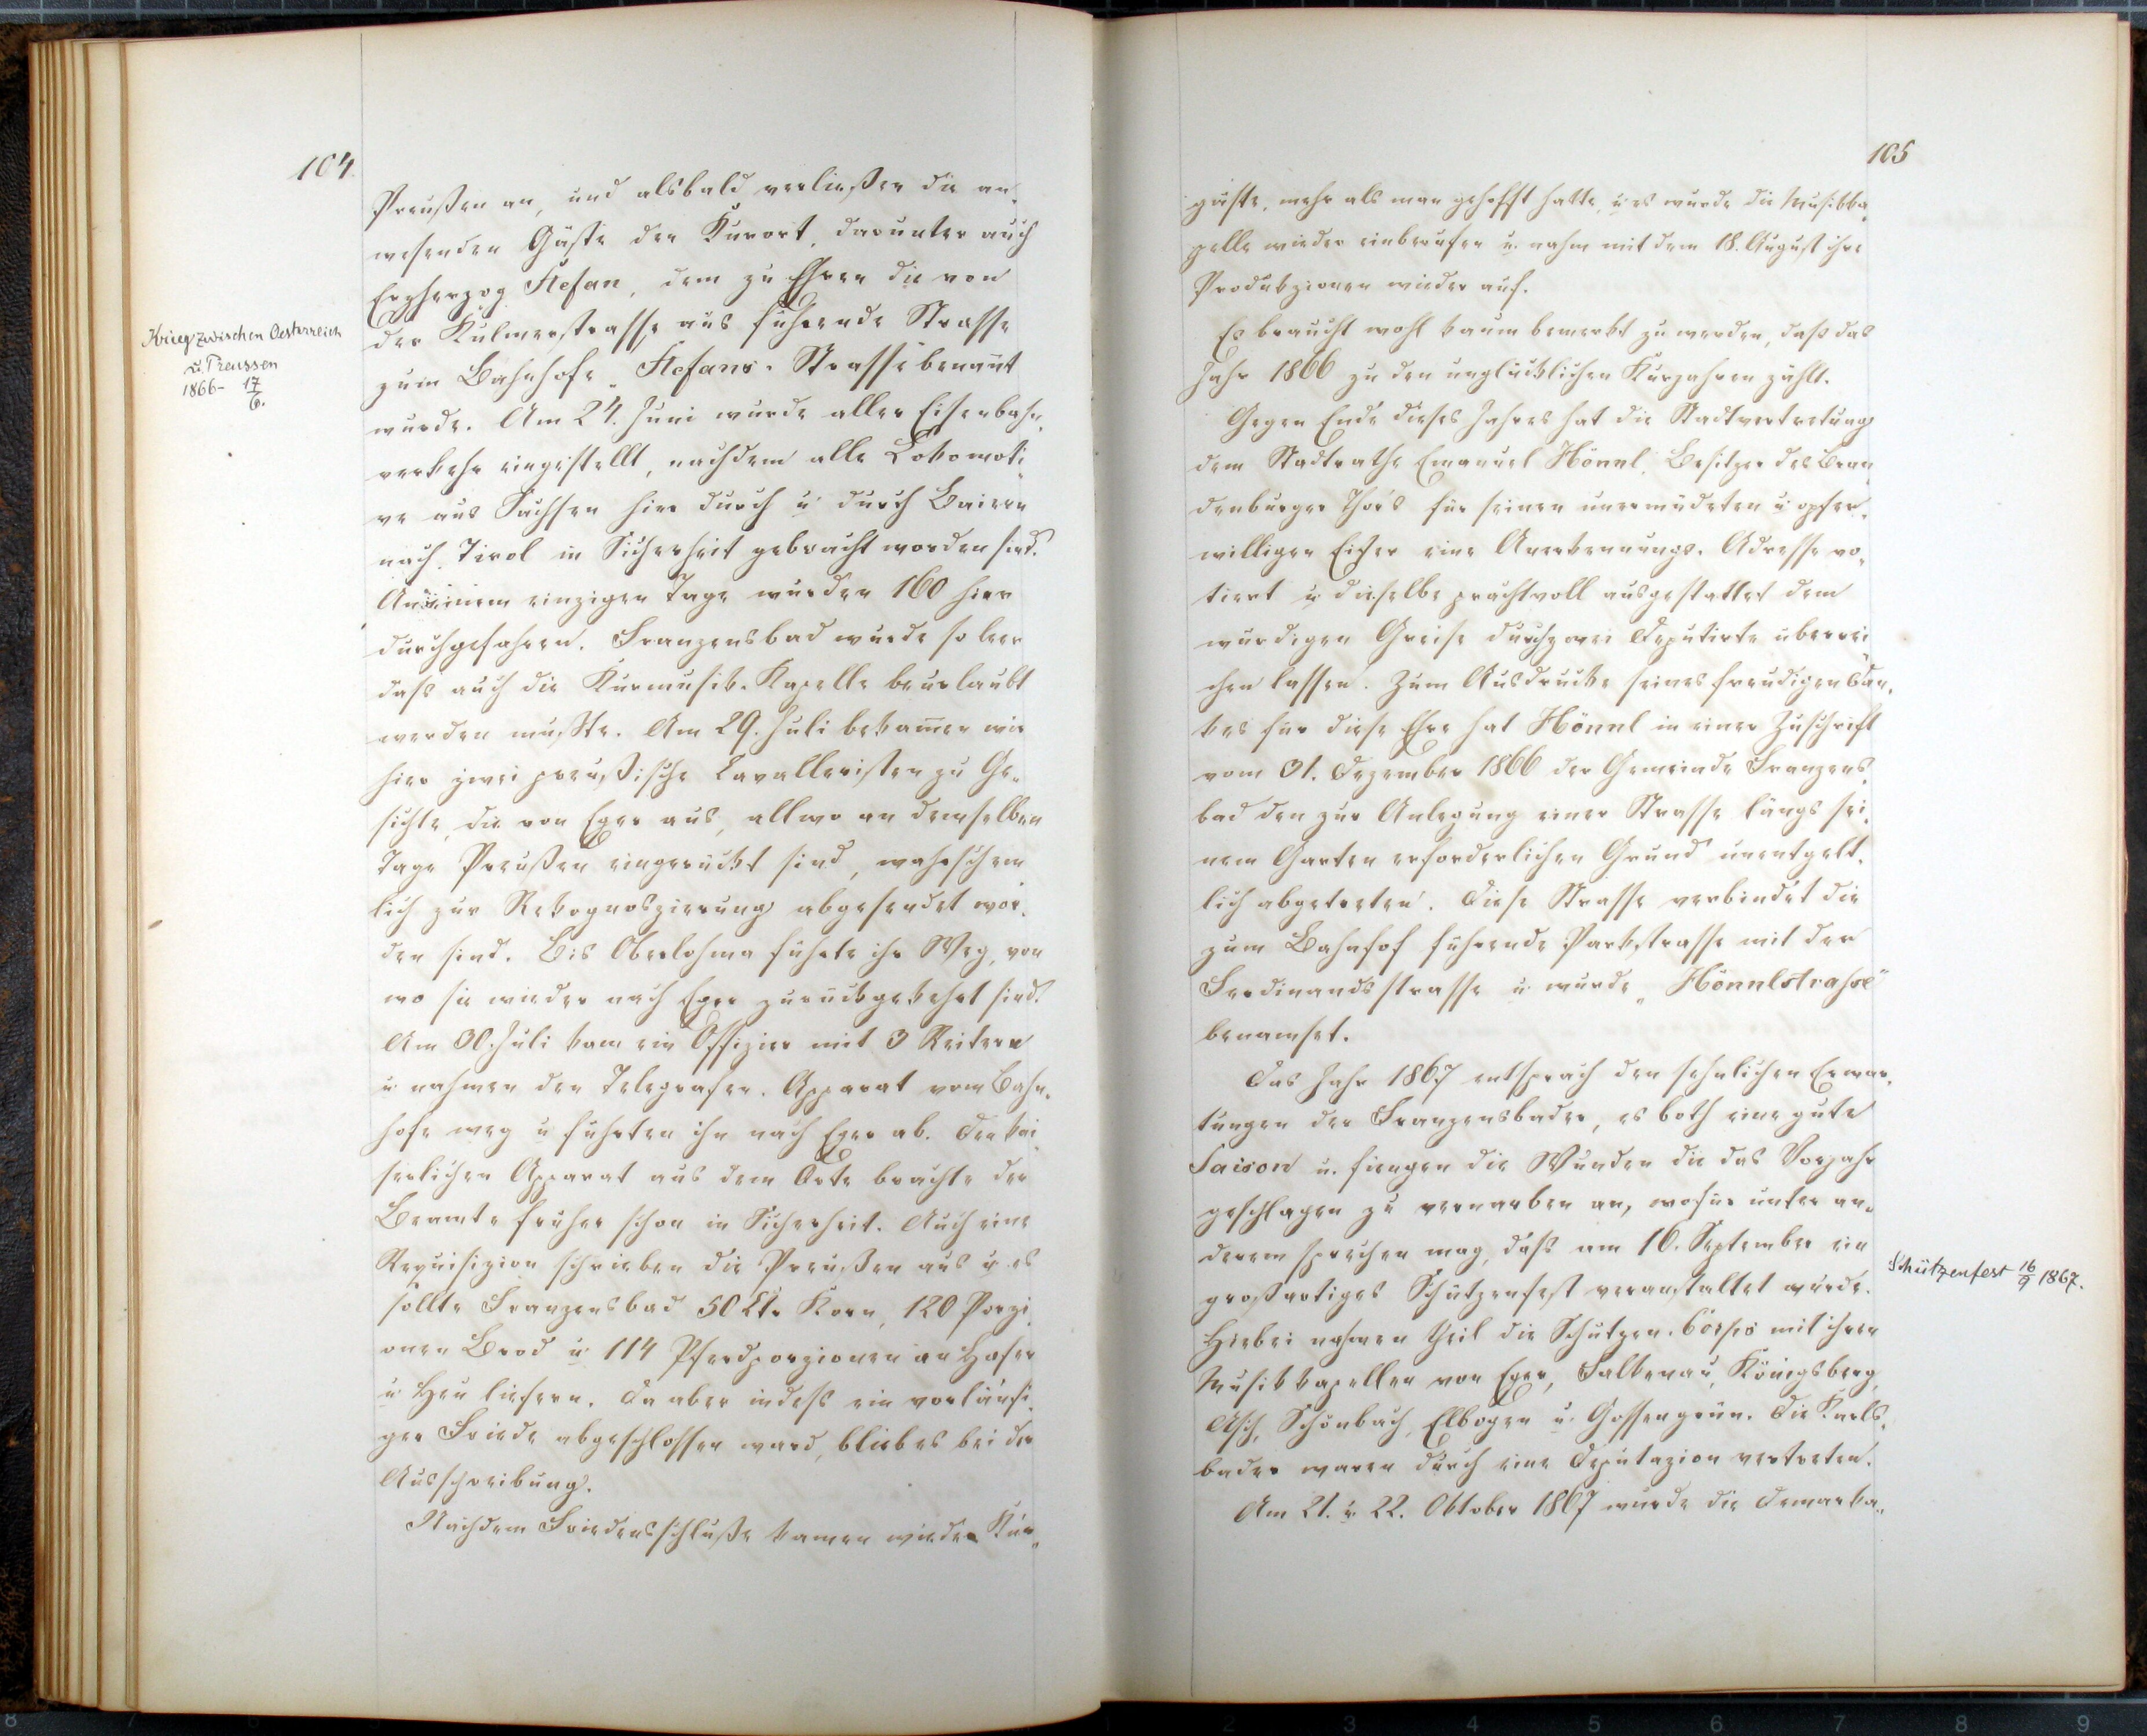 104
Preußen an, und alsbald verließen die an-
wesenden Gäste den Kurort, darunter auch
Erzherzog Stefan, dem zu Ehren die von
der Kulmerstrasse aus führende Strasse
zum Bahnhofe „Stefans-Strasse benannt
wurde. Am 24. Juni wurde aller Eisenbahn-
verkehr eingestellt, nachdem alle Lokomoti-
ve aus Sachsen hier durch u durch Baiern
nach Tirol in Sicherheit gebracht worden sind.
An einem einzigen Tage wurden 160 hier
durchgefahren. Franzensbad wurde so leer
daß auch die Kurmusik-Kapelle beurlaubt
werden mußte. Am 29. Juli bekamen wir
hier zwei preußische Cavalleristen zu Ge-
sichte, die von Eger aus, allwo an demselben
Tage Preußen eingerückt sind, wahrschein
lich zur Rekognoszierung abgesendet wor-
den sind. Bis Oberlohma führte ihr Weg, von
wo sie wieder nach Eger zurückgekehrt sind.
Am 30. Juli kam ein Offizier mit 3 Reitern
u nahmen den Telegrafen-Apparat vom Bahn-
hofe weg u führten ihn nach Eger ab. Den kai-
serlichen Apparat aus dem Orte brachte der
Beamte früher schon in Sicherheit. Auch eine
Requisizion schrieben die Preußen aus u es
sollte Franzensbad 50 Ctr Korn, 120 Porzi-
onen Brod u 114 Pferdporzionen an Hafer
u Heu liefern. Da aber indeß ein vorläufi-
ger Friede abgeschlossen ward, blieb es bei der
Ausschreibung.
Nach dem Friedensschluße kamen wieder Kur-
Krieg zwischen Oesterreich
u. Preussen
1866 - 17/6.
105
gäste, mehr als man gehofft hatte, u es wurde die Musikka-
pelle wieder einberufen u. nahm mit dem 18. August ihre
Produkzionen wieder auf.
Es braucht wohl kaum bemerkt zu werden, daß das
Jahr 1866 zu den unglücklichen Kurjahren zählt.
Gegen Ende dieses Jahres hat die Stadtvertretung
dem Stadtrathe Emanuel Hönnl, Besitzer des Bran-
denburger Thors für seinen unermüdeten u opfer-
willigen Eifer eine Anerkennungs-Adresse vo-
tiert u dieselbe prachtvoll ausgestattet dem
würdigen Greise durch zwei Deputirte überrei-
chen lassen. Zum Ausdrucke seines freudigen Dan-
kes für diese Ehre hat Hönnl in einer Zuschrift
vom 31. Dezember 1866 der Gemeinde Franzens-
bad den zur Anlegung einer Strasse längs sei-
nem Garten erforderlichen Grund unentgelt-
lich abgetreten. Diese Strasse verbindet die
zum Bahnhof führende Parkstrasse mit der
Ferdinandsstrasse u wurde „Hönnlstraße“
benamset.
Das Jahr 1867 entsprach den sehnlichen Erwar-
tungen der Franzensbader, es both eine gute
Saison u. fiengen die Wunden die das Vorjahr
geschlagen zu vernarben an, wofür unter an-
derem sprechen mag, daß am 16. September ein
großartiges Schützenfest veranstaltet wurde.
Hiebei nahmen theil die Schützen-Corps mit ihren
Musikkapellen von Eger, Falkenau, Königsberg,
Asch, Schönbach, Elbogen u. Gossengrün. Die Karls-
bader waren durch eine Deputazion vertreten.
Am 21. u. 22. Oktober 1867 wurde die Demarka-
Schützenfest 16/9 1867.